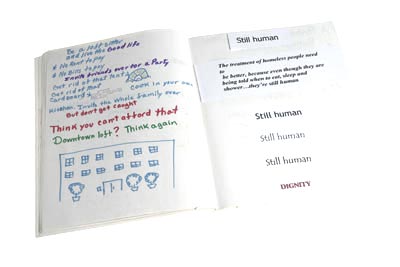 Be a loft sitter
and live the Good life
No Rent to pay
No Bills to pay
Invite friends over for a Party
Get rid of that tent
Get rid of that
Cardboard
Cook in your own
Kitchen. Invite the whole family over
But don't get caught
Think you can't afford that
Downtown loft? Think again.
Still human
The treatment of homeless people need
to
be better, because even though they are
being told when to eat, sleep and
shower...they're still human
Still human
Still human
Still human
DIGNITY